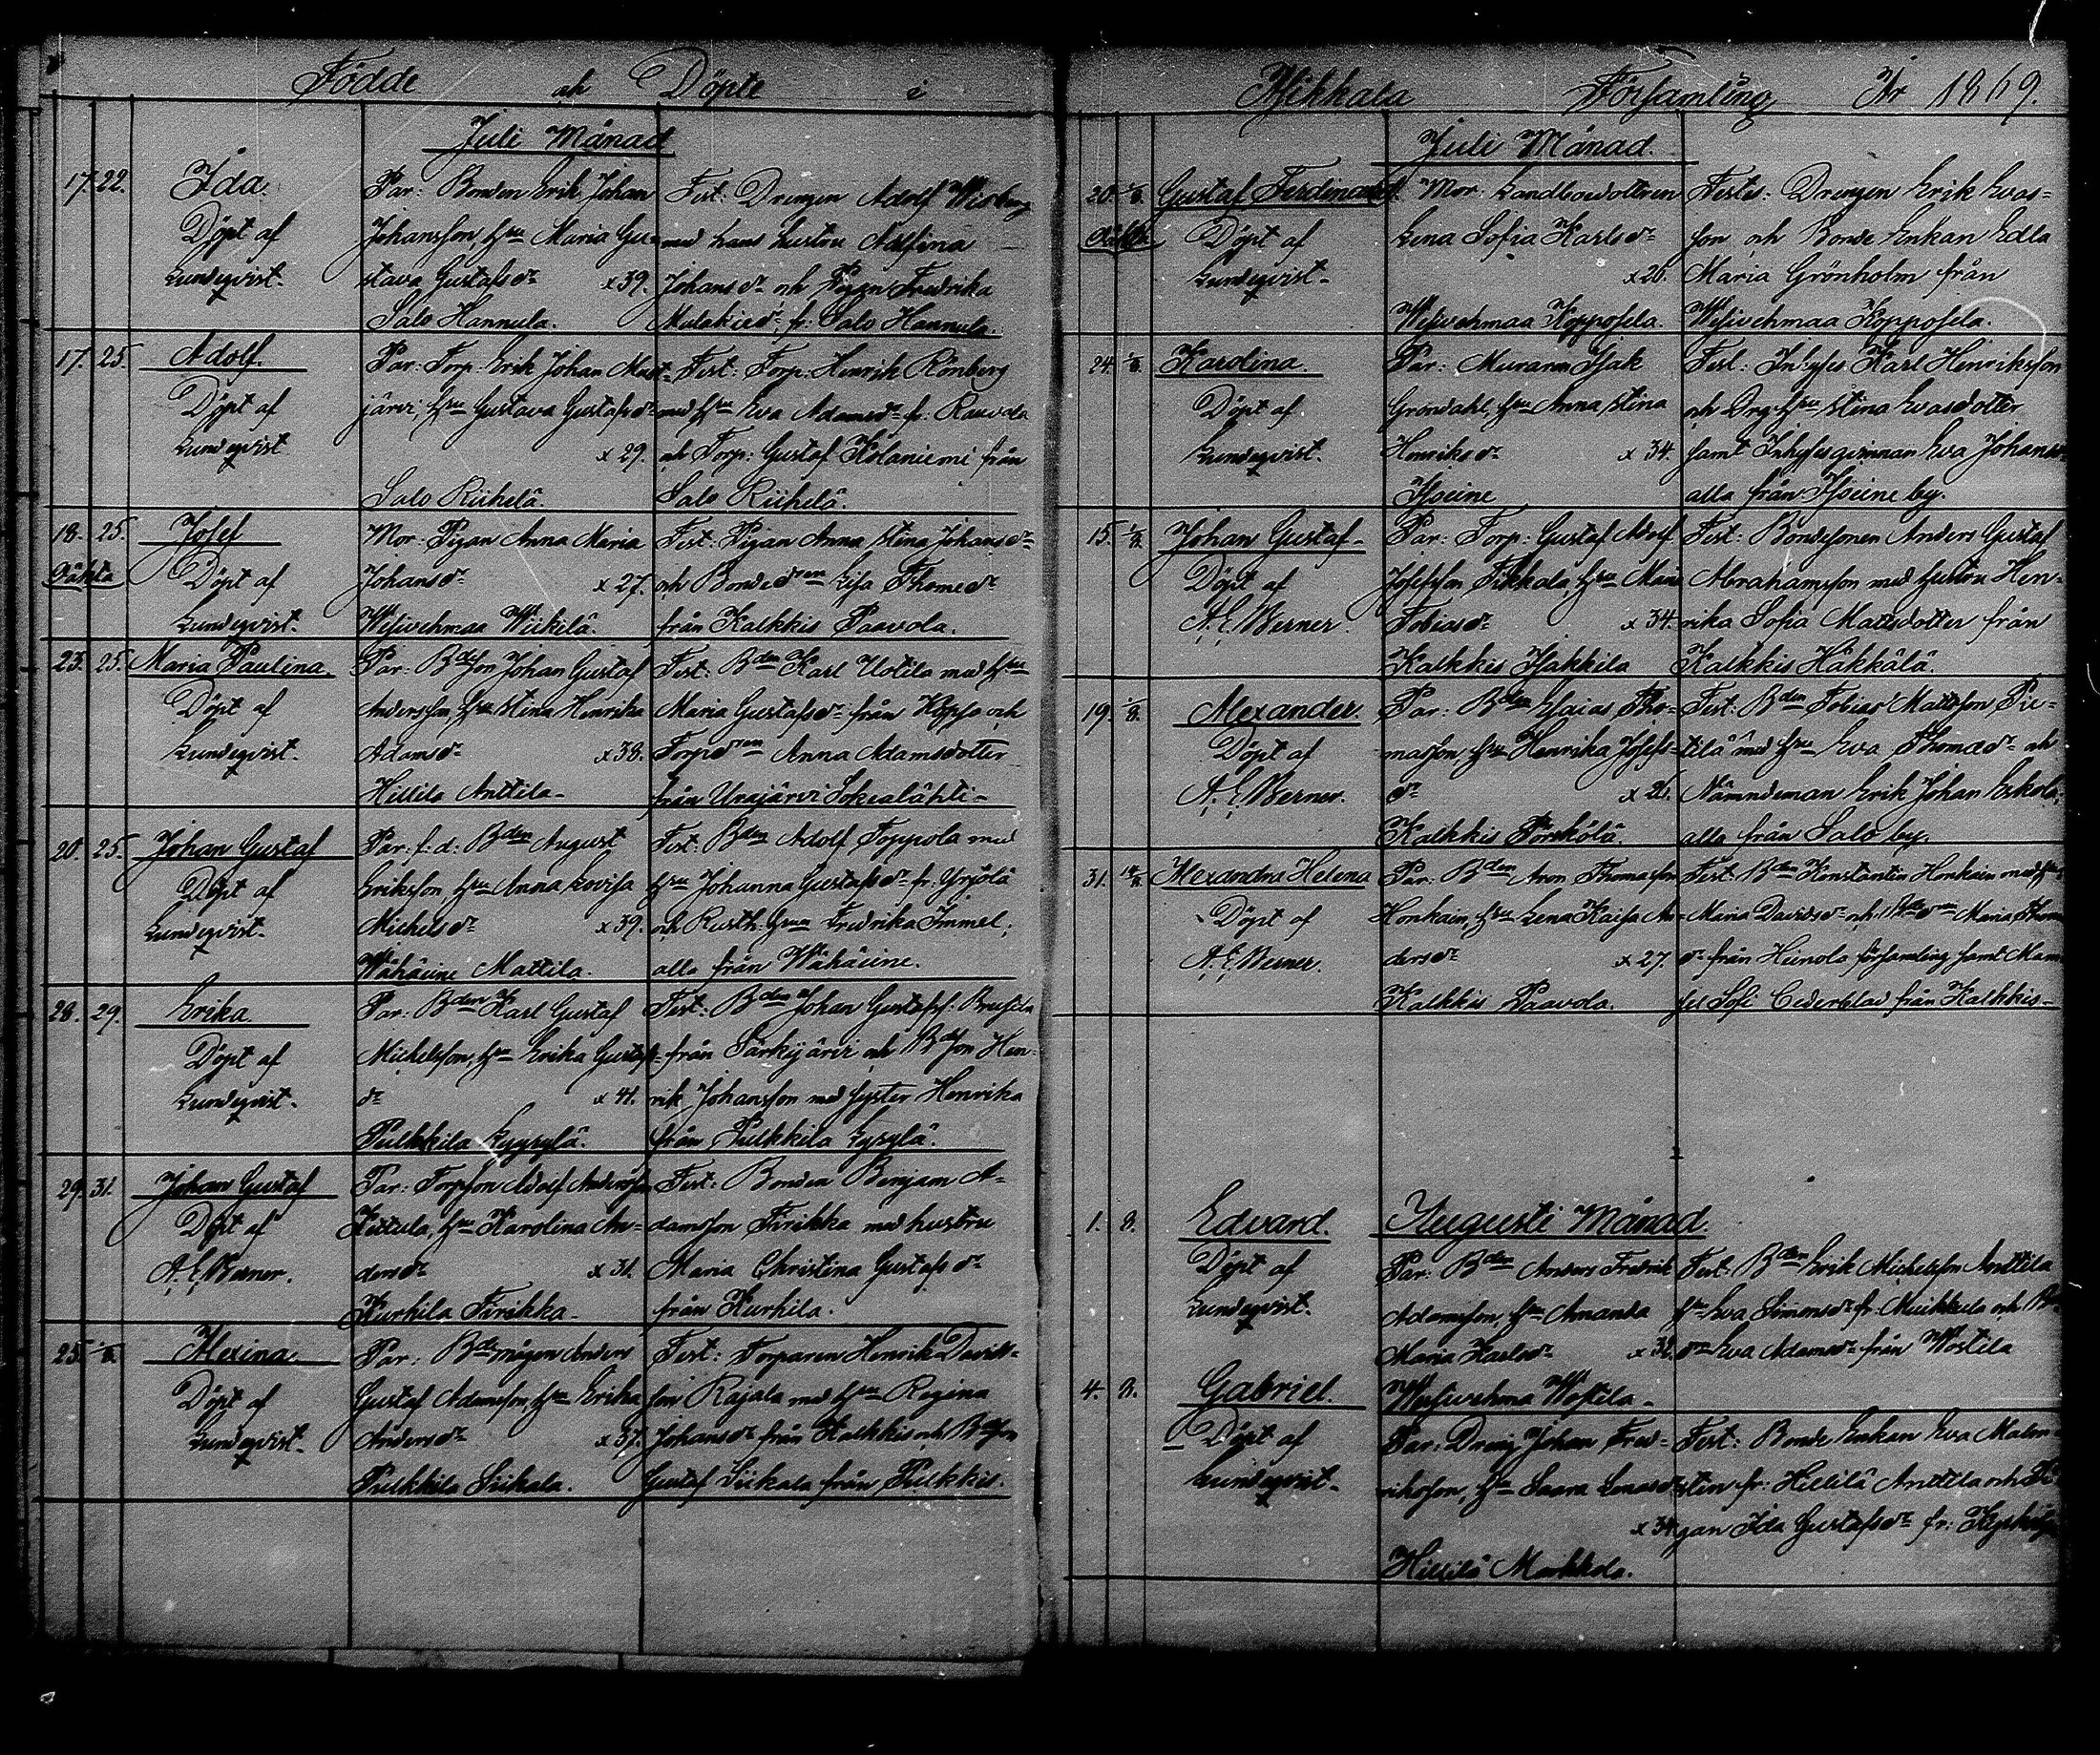 Födde och Döpte i
Juli Månad
17. 22. Ida.
Döpt af
Lundqvist.
Par: Bonden Erik Johan
Johansson, hru Maria Gu-
stava Gustafsdr x 39.
Salo Hannula.
Test: Drengen Adolf Wisberg
med hans hustru Adolfina
Johansdr och Pigan Fredrika
fr: Salo Hannula.
17. 25. Adolf.
Döpt af
Lundqvist
Par: Torp: Erik Johan Must-
järvi, hru Gustava Gustafsdr
x 29.
Salo Riihelä.
Test: Torp: Henrik Rönberg
med hru Eva Adamsdr fr: Raavola
och Torp: Gustaf Kölaniemi från
Salo Riihelä.
18. 25. Josef
Oäkta
Döpt af
Lundqvist.
Mor: Pigan Anna Maria
Johansdr x 27.
Wesivehmaa Wiikilä.
Test: Pigan Anna Stina Johansdr
och Bondedren Lisa Thomedr
från Kalkkis Paavola.
23. 25. Maria Paulina.
Döpt af
Lundqvist.
Par: Bdeson Johan Gustaf
Andersson, hru Stina Henrika
Adamsdr x 38.
Hillilä Anttila-
Test: Bden Karl Uotila med hru
Maria Gustafsdr från och
Torpdren Anna Adamsdotter
från Urajärvi Sokealähti-
20. 25. Johan Gustaf
Döpt af
Lundqvist.
Par: f.d. Bden August
Eriksson, hru Anna Lovisa
Michelsdr x 39.
Wähäime Mattila.
Test: Bden Adolf Toppola med
hru Johanna Gustafsdr fr: Yrjölä
och Rusth: hrun Fredrika Immel;
alla från Wähäime.
28. 29. Erika.
Döpt af
Lundqvist.
Par: Bden Karl Gustaf
Michelsson, hru Erika Gustafs-
dr x 41.
Pulkkila Kysylä.
Test: Bden Johan Gustafss:
från Särkijärvi och Bdson Hen-
rik Johansson med syster Henrika
från Pulkkila Kysylä.
29. 31. Johan Gustaf
Döpt af
A. E. Werner.
Par: Torpson Adolf Andersson
Kettula, hru Karolina An-
dersdr x 31.
Kurhila Tirikka-
Test: Bonden Benjam A-
damsson Tirikka med hustru
Maria Christina Gustafsdr
från Kurhila.
25. 1/8. Alexina.
Döpt af
Lundqvist.
Par: Bdemågen Anders
Gustaf Adamsson, hru Erika
Andersdr x 37.
Pulkkila Siikala.
Test: Torparen Henrik Davids-
son Rajala med hru Regina
Johansdr från Kalkkis och Bdson
Gustaf Siikala från Pulkkis.
Församling År 1869.
Juli Månad.
20. 1/8. Gustaf Ferdinand.
Oäkta
Döpt af
Lundqvist.
Mor: Landbondottren
Lena Sofia Karlsdr
x 26.
Wesivehmaa Kopposela.
Testes: Drengen Erik Evas-
son och Bonde Enkan Edla
Maria Grönholm från
Wesivehmaa Kopposela.
24. 1/8. Karolina.
Döpt af
Lundqvist.
Par: Muraren Isak
Gröndahl, hru Anna Stina
Henriksdr x 34.
Test: Inhyses Karl Henriksson
och Drg hru Stina Evasdotter
samt Inhysesqvinnan Eva Johansdr
15. 1/8. Johan Gustaf-
Döpt af
A. E. Werner.
Par: Torp: Gustaf Adolf
Josefsson Tikkala, hru Maria
Tobiasdr x 34.
Kalkkis Hakkila
Test: Bondesonen Anders Gustaf
Abrahamsson med hustru Hen-
rika Sofia Matsdotter från
Kalkkis Häkkälä.
19. 1/8. Alexander.
Döpt af
A. E. Werner.
Par: Bden Esaias Tho-
masson, hru Henrika Josefs-
dr x 26.
Kalkkis Törskölä.
Test: Bden Tobias Mattsson Pie-
tilä med hru Eva Thomasdr och
Nämndeman Erik Johan Eskola;
alla från Salo by.
31. Alexandra Helena
Döpt af
A. E. Werner.
Par: Bden Aron Thomasson
Honkain, hru Lena Kaisa An-
dersdr x 27.
Kalkkis Paavola.
Test: Bden Konstantin Honkain med hru
Maria Davidsdr och Maria Thomas
dr från Heinola församling samt Mam-
sel Sofi Cederblad från Kalkkis-
Augusti Månad.
1. 8. Edvard.
Döpt af
Lundqvist.
Par: Bden Anders Fredrik
Adamsson, hru Amanda
Maria Karlsdr
Wesivehma Wostila-
Test: Bden Erik Michelsson Anttila
hru Eva Simonsdr fr: och
dren Eva Adamsdr från Wostila
4. 8. Gabriel.
Döpt af
Lundqvist.
Par: Dreng Johan Fred-
riksson, hru Saara
x 34.
Hillilä Markkola.
Test: Bonde Enkan Eva Malm-
sten fr: Hillilä Anttila och Pi-
gan Ida Gustafsdr fr: